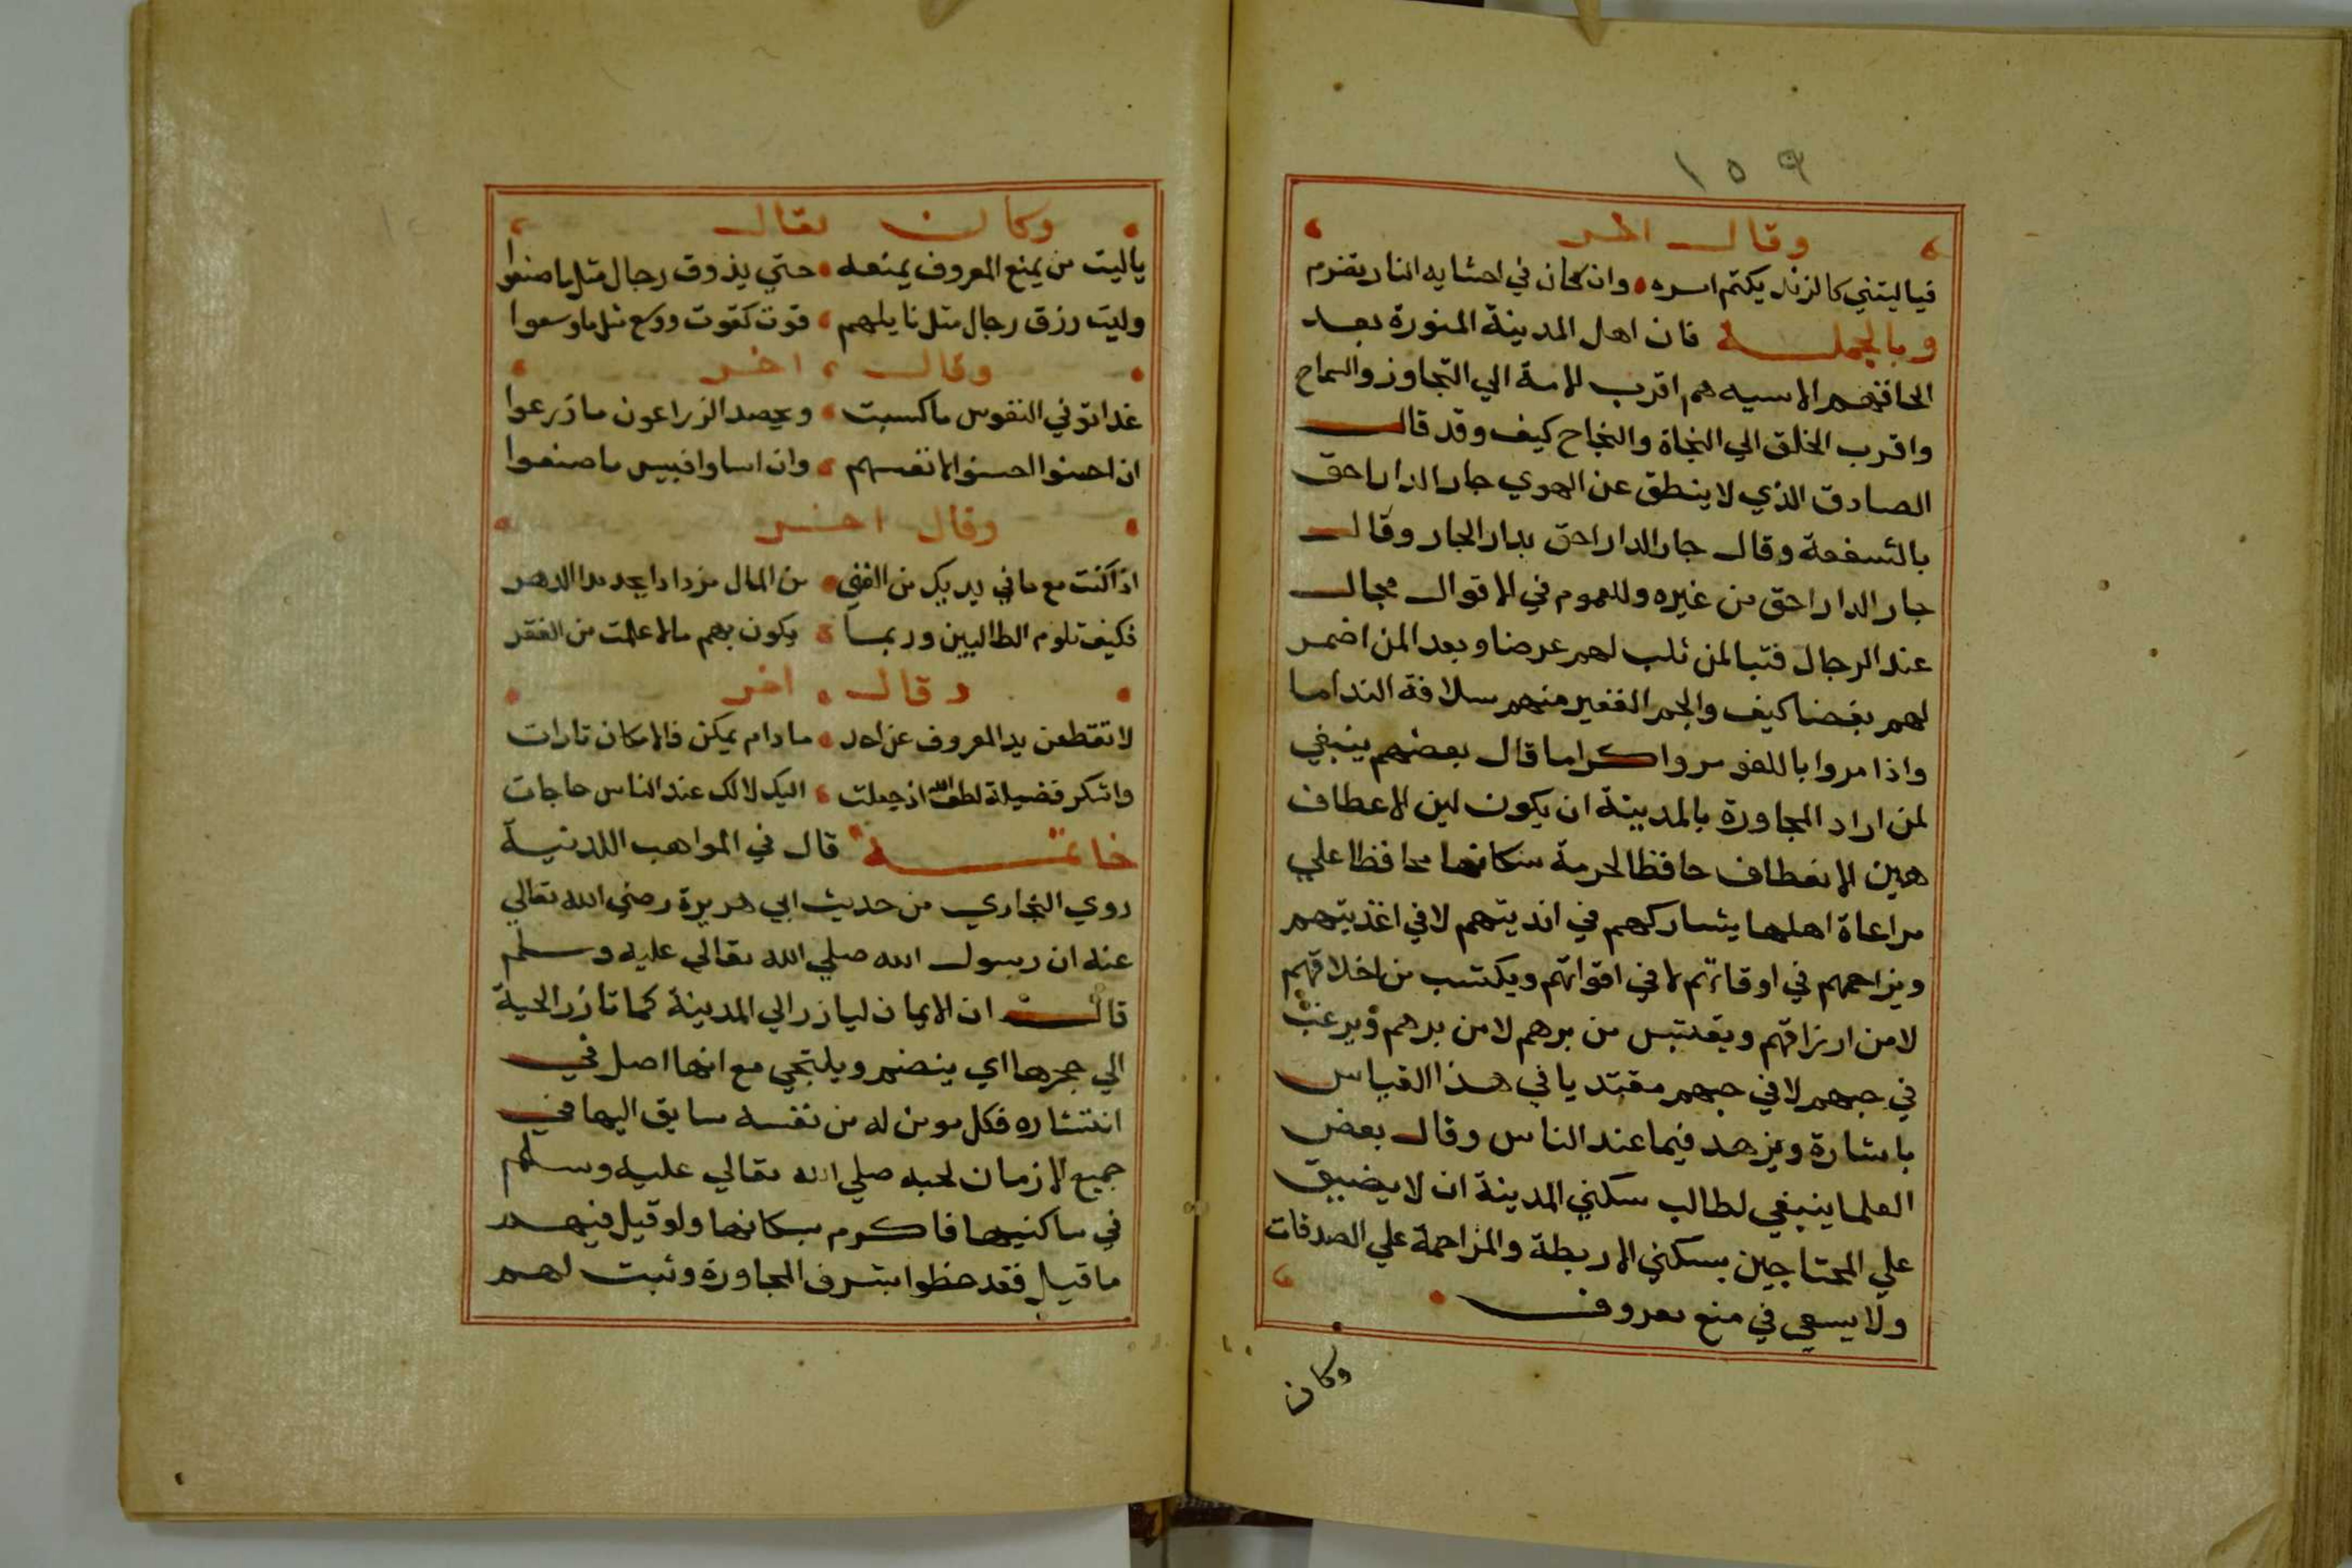 ١٥٩
وقال اخر
فياليتني كالزند يكتم اسره وان كان في احشايه النار تضرم
وبالجملة فان اهل المدينة المنورة بعد
هم اقرب الامة الي التجاوز والسماح
واقرب الخلق الي النجاة والنجاح كيف وقد قال
الصادق الذي لا ينطق عن الهوي جار الدار احق
بالشفعة وقال جار الدار احق بدار الجار وقال
جار الدار احق من غيره وللعموم في الاقوال مجال
عند الرجال فتبا لمن ثلب لهم عرضا وبعد المن اضمر
لهم بغضا كيف والجم الغفير منهم سلافة النداما
واذا مروا باللغو مروا كراما قال بعضهم ينبغي
لمن اراد المجاورة بالمدينة ان يكون لين الاعطاف
هين الانعطاف حافظا لحرمة سكانها محافظا علي
مراعاة اهلها يشاركهم في انديتهم لا في اغذيتهم
ويزاحمهم في اوقاتهم لا في اقواتهم ويكتسب من اخلاقهم
لا من ارزاقهم ويقتبس من برهم لا من برهم ويرغب
في حبهم لا في حبهم مقتديا في هذا القياس
باشارة ويزهد فيما عند الناس وقال بعض
العلما ينبغي لطالب سكني المدينة ان لا يضيق
علي المحتاجين بسكني الاربطة والمزاحمة علي الصدقات
ولا يسعي في منع معروف
وكان
وكان يقال
ياليت من يمنع المعروف يمنعه حتي يذوق رجال مثل ما صنعوا
وليت رزق رجال مثل نايلهم قوت كقوت ووسع مثل ما وسعوا
وقال اخر
غدا توفي النفوس ما كسبت ويحصد الزراعون ما زرعوا
ان احسنوا احسنوا لانفسهم وان اساوا فبيس ما صنعوا
وقال اخر
اذا كنت مع ما في يديك من الغني من المال مزدادا يجد مدا الدهر
فكيف تلوم الطالبين وربما يكون بهم مالا علمت من الفقر
وقال اخر
لا تقطعن يد المعروف عن احد ما دام يمكن فالامكان تارات
واشكر فضيلة لطف الله اذ جعلت اليك لا لك عند الناس حاجات
خاتمة قال في المواهب اللدنية
روي البخاري من حديث ابي هريرة رضي الله تعالي
عنه ان رسول الله صلي الله تعالي عليه وسلم
قال ان الايمان ليازر الي المدينة كما تازر الحية
الي جحرها اي ينضم ويلتجي مع انها اصل في
انتشاره فكل مومن له من نفسه سايق اليها في
جميع الازمان لحبه صلي الله تعالي عليه وسلم
في ساكنيها فاكرم بسكانها ولو قيل فيهم
ما قيل فقد حظوا بشرف المجاورة وثبت لهم